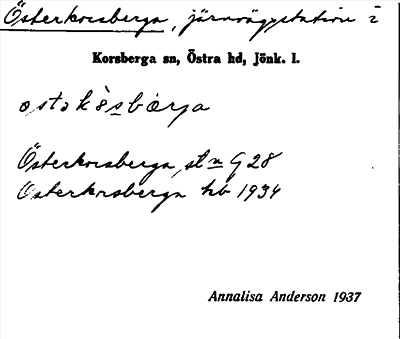 Österkorsberga, järnvägsstation i
Korsberga sn, Östra hd, Jönk. l.
Österkorsberga, stn G 28
Österkorsberga hb 1934
Annalisa Anderson 1937